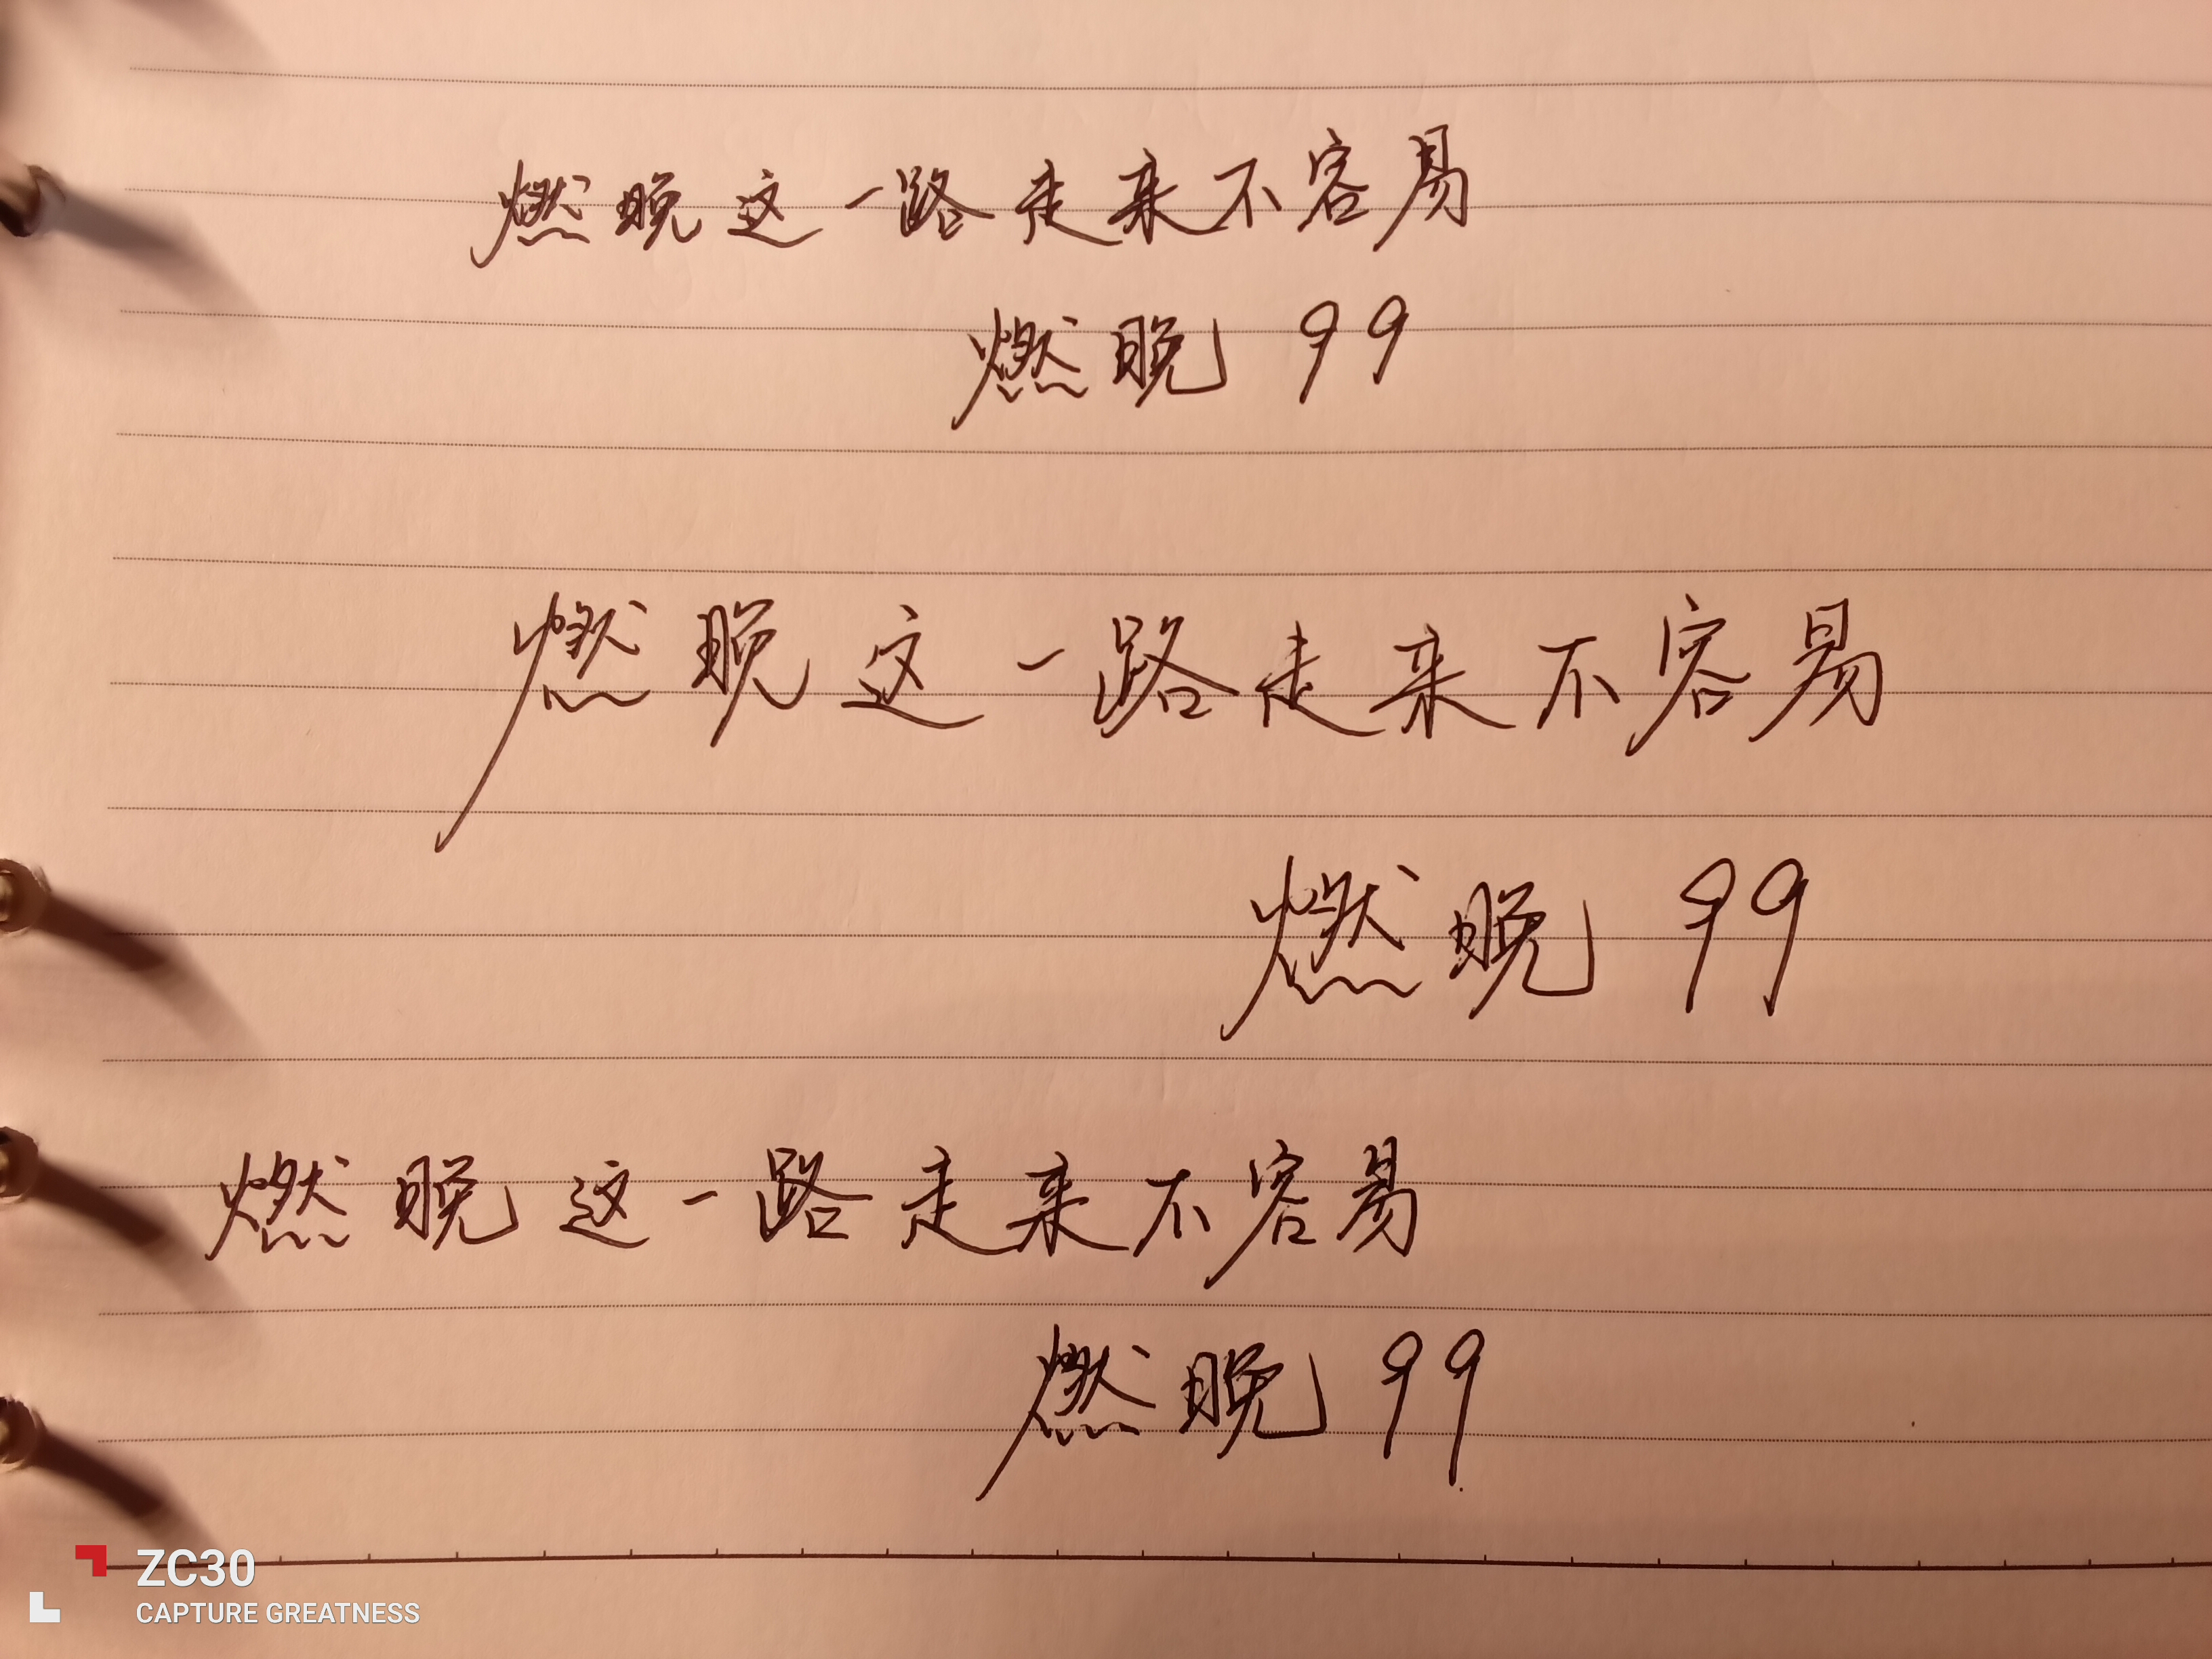 燃晚这一路走来不容易
燃晚 99
燃晚这一路走来不容易
燃晚 99
燃晚这一路走来不容易
燃晚 99
ZC30
CAPTURE GREATNESS